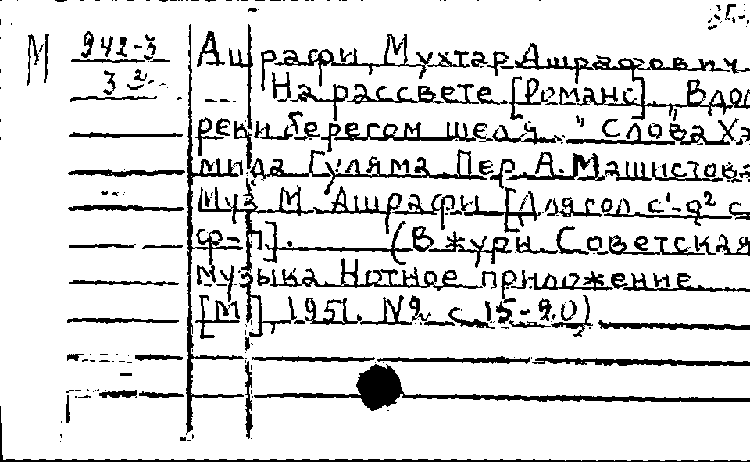 М 942-3 Ашрафи, Мухтар Ашрафович
3
На рассвете [Романс]. „Вдол
реки берегом шел я..." Слова Ха
мида Гуляма. Пер. А. Машистова
Муз М. Ашрафи [Для гол. с¹-g² с
ф-п]. (В журн. Советская
музыка. Нотное приложение.
[М], 1951. N2. с. 15-20)